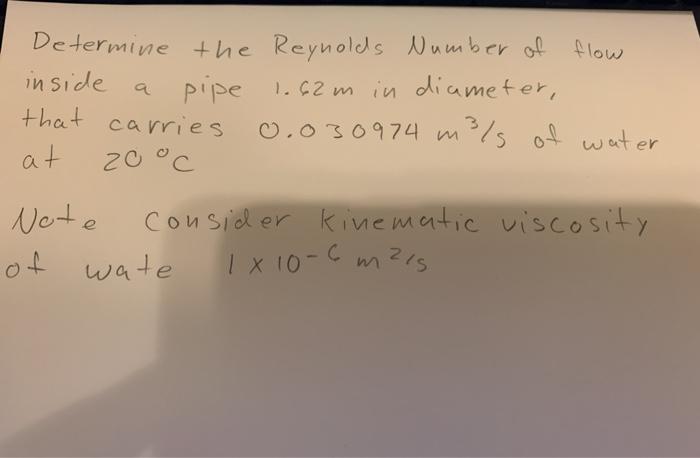 Determine the Reynolds Number of flow
inside a pipe 1.62 m in diameter,
that carries 0.030974 m³/s of water
at 20 °C
Note consider kinematic viscosity
of wate 1 x 10-6 m²/s